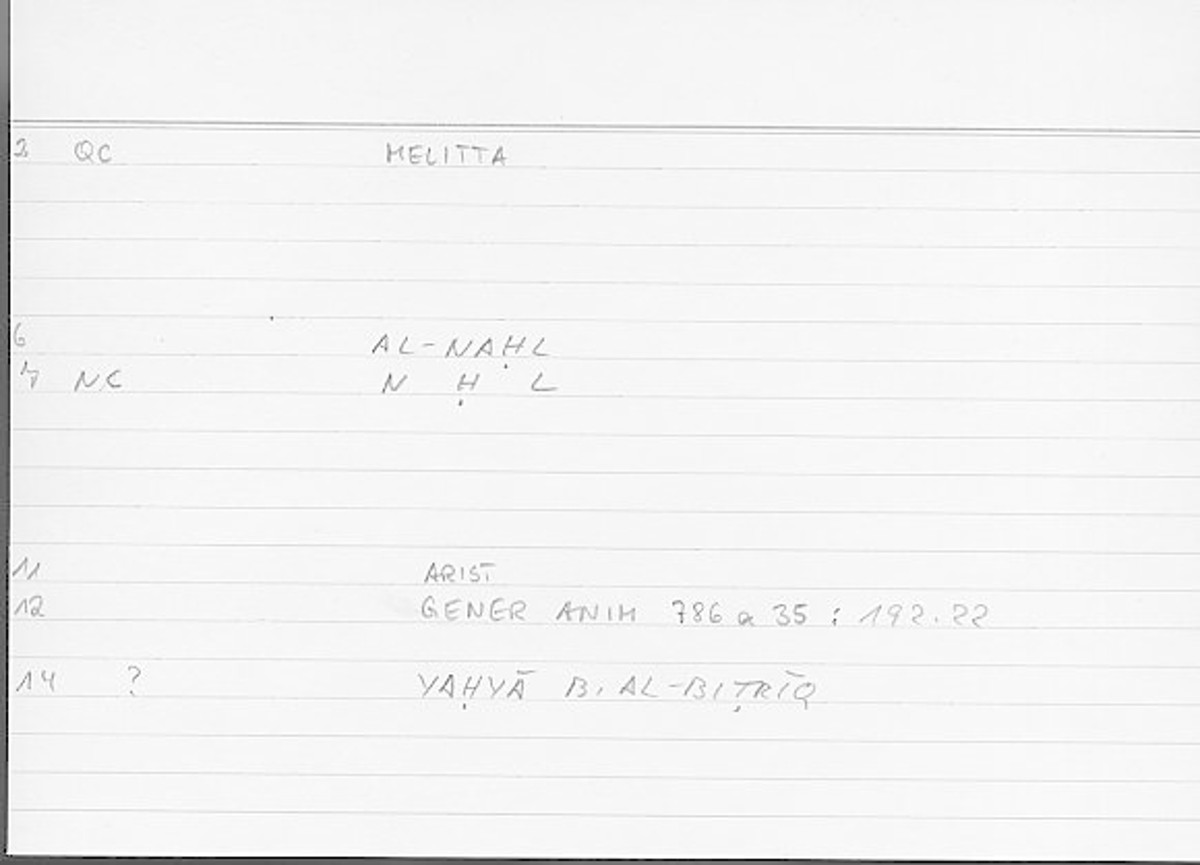 3 QC MELITTA
6 AL-NAḤL
7 NC N Ḥ L
11 ARIST
12 GENER ANIM 786 a 35 : 192.22
14 ? YAḤYĀ B. AL-BIṬRĪQ